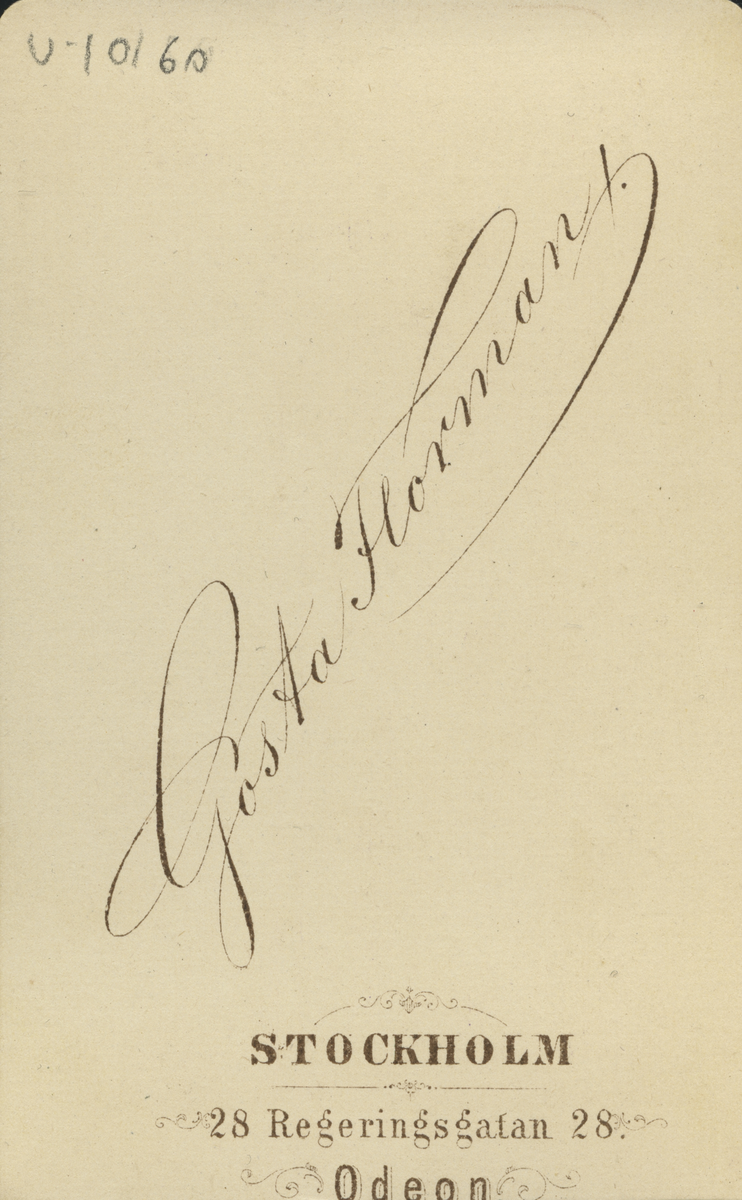 U-10160
Gösta Florman.
STOCKHOLM
28 Regeringsgatan 28.
Odeon